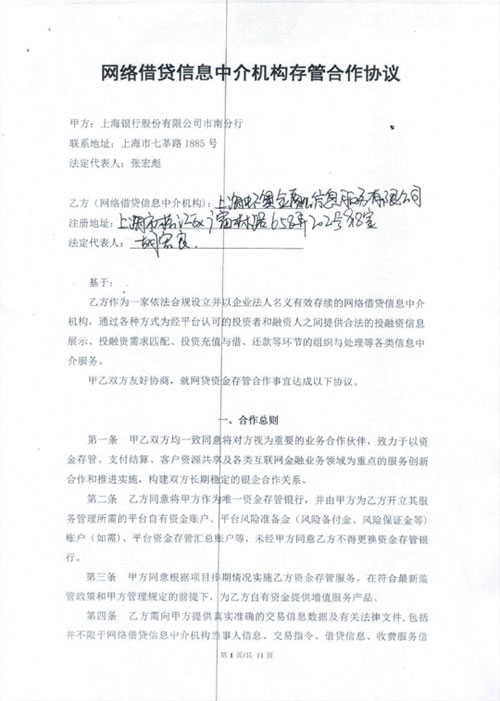 网络借贷信息中介机构存管合作协议
甲方：上海银行股份有限公司市南分行
联系地址：上海市七莘路 1885 号
法定代表人：张宏彪
乙方（网络借贷信息中介机构）：上海 金融信息服务有限公司
注册地址：上海市松江区 富林路658弄202号 室
法定代表人：胡 良
基于：
乙方作为一家依法合规设立并以企业法人名义有效存续的网络借贷信息中介
机构，通过各种方式为经平台认可的投资者和融资人之间提供合法的投融资信息
展示、投融资需求匹配、投资充值与借、还款等环节的组织与处理等各类信息中
介服务。
甲乙双方友好协商，就网贷资金存管合作事宜达成以下协议。
一、合作总则
第一条 甲乙双方均一致同意将对方视为重要的业务合作伙伴，致力于以资
金存管、支付结算、客户资源共享及各类互联网金融业务领域为重点的服务创新
合作和推进实施，构建双方长期稳定的银企合作关系。
第二条 乙方同意将甲方作为唯一资金存管银行，并由甲方为乙方开立其服
务管理所需的平台自有资金账户、平台风险准备金（风险备付金、风险保证金等）
账户（如需）、平台资金存管汇总账户等，未经甲方同意乙方不得更换资金存管银
行。
第三条 甲方同意根据项目排期情况实施乙方资金存管服务，在符合最新监
管政策和甲方管理规定的前提下，为乙方自有资金提供增值服务产品。
第四条 乙方需向甲方提供真实准确的交易信息数据及有关法律文件,包括
并不限于网络借贷信息中介机构当事人信息、交易指令、借贷信息、收费服务信
第 1 页/共 11 页